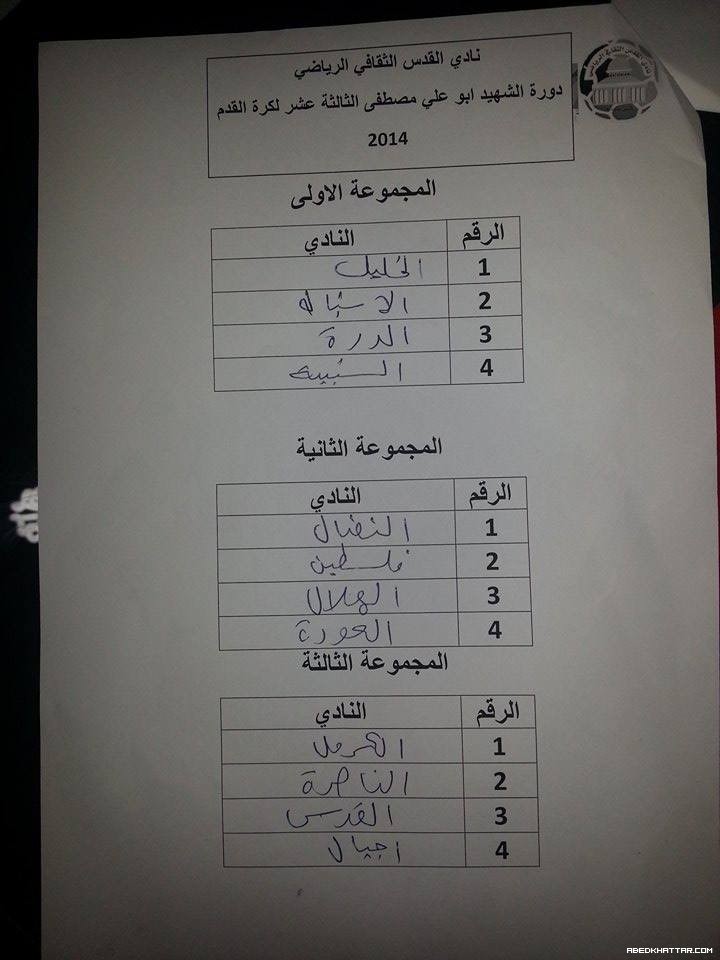 نادي القدس الثقافي الرياضي
نادي القدس الثقافي الرياضي
دورة الشهيد ابو علي مصطفى الثالثة عشر لكرة القدم
2014
المجموعة الاولى
الرقم النادي
1 الخليل
2 الاشبال
3 الدرة
4 الشبيبة
المجموعة الثانية
الرقم النادي
1 النضال
2 فلسطين
3 الهلال
4 العودة
المجموعة الثالثة
الرقم النادي
1 الكرمل
2 الناصرة
3 القدس
4 اجيال
ABEDKHATTAR.COM